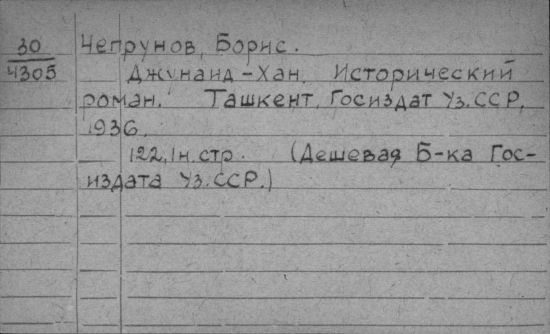 30 Чепрунов, Борис.
4305 Джунаид-Хан. Исторический
роман. Ташкент, Госиздат Уз.ССР,
1936.
122, 1 н. стр. (Дешевая Б-ка Гос-
издата Уз.ССР.)